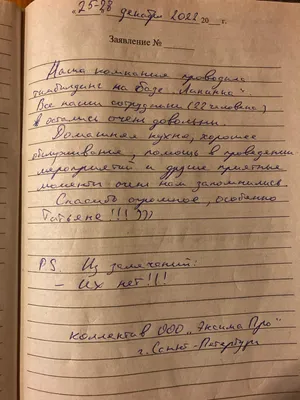 "25-28 декабря 2022 20 г.
Заявление №
Наша компания проводила
тимбилдинг на Базе "Лапино"
Все наши сотрудники (22 человека)
остались очень довольны.
Домашняя кухня, хорошее
обслуживание, помощь в проведении
мероприятий и другие приятные
моменты очень нам запомнились.
Спасибо огромное, особенно
Татьяне!!! )))
P.S. Из замечаний:
- Их нет!!!
коллектив ООО "Эксима Про"
г. Санкт-Петербург